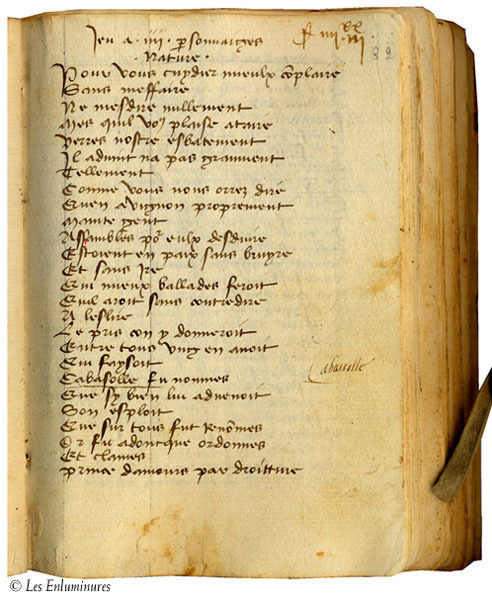 Jeu a · iiii · p̱sonnaiges
fᵒ iiii xx iii
82
· Nature ·
Pour vous cuydier mieulx cõplaire
Sans meffaire
Ne mesdire nullement
Mes quil voꝰ plaise ataire
Verres nostre esbatement
Il advint na pas grauuent
Tellement
Comme vous nous orrez dire
Quen avignon proprement
Mainte gent
Assambles po͛ eulx desduire
Estoient en paix sans bruyre
Et sans ire
Qui mieux ballades feroit
Quil aroit sans contredire
A leslire
Le pris con y donneroit
Entre tous ung en avoit
Qui faysoit
Cabasolle fu nommes
Cabassolle
Que sy bien luy advenoit
Son esploit
Que sur tous fut renõmes
Or fu adoncque ordonnes
Et clames
Prince damours par droitture
© Les Enluminures